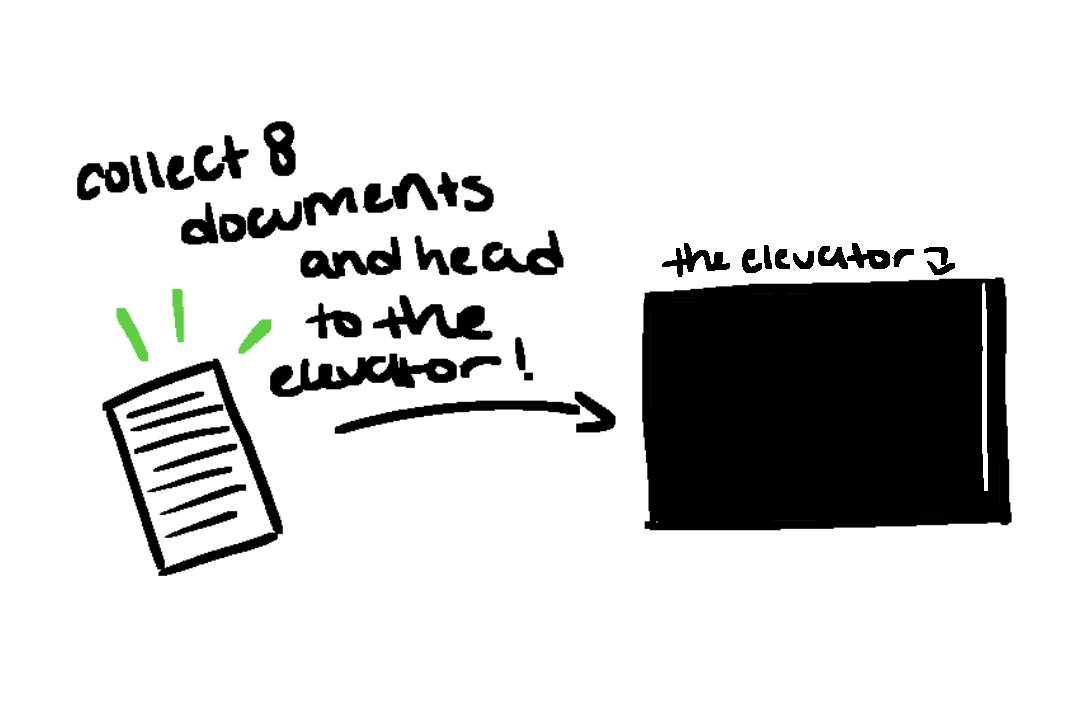 collect 8
documents
and head
to the
elevator!
the elevator